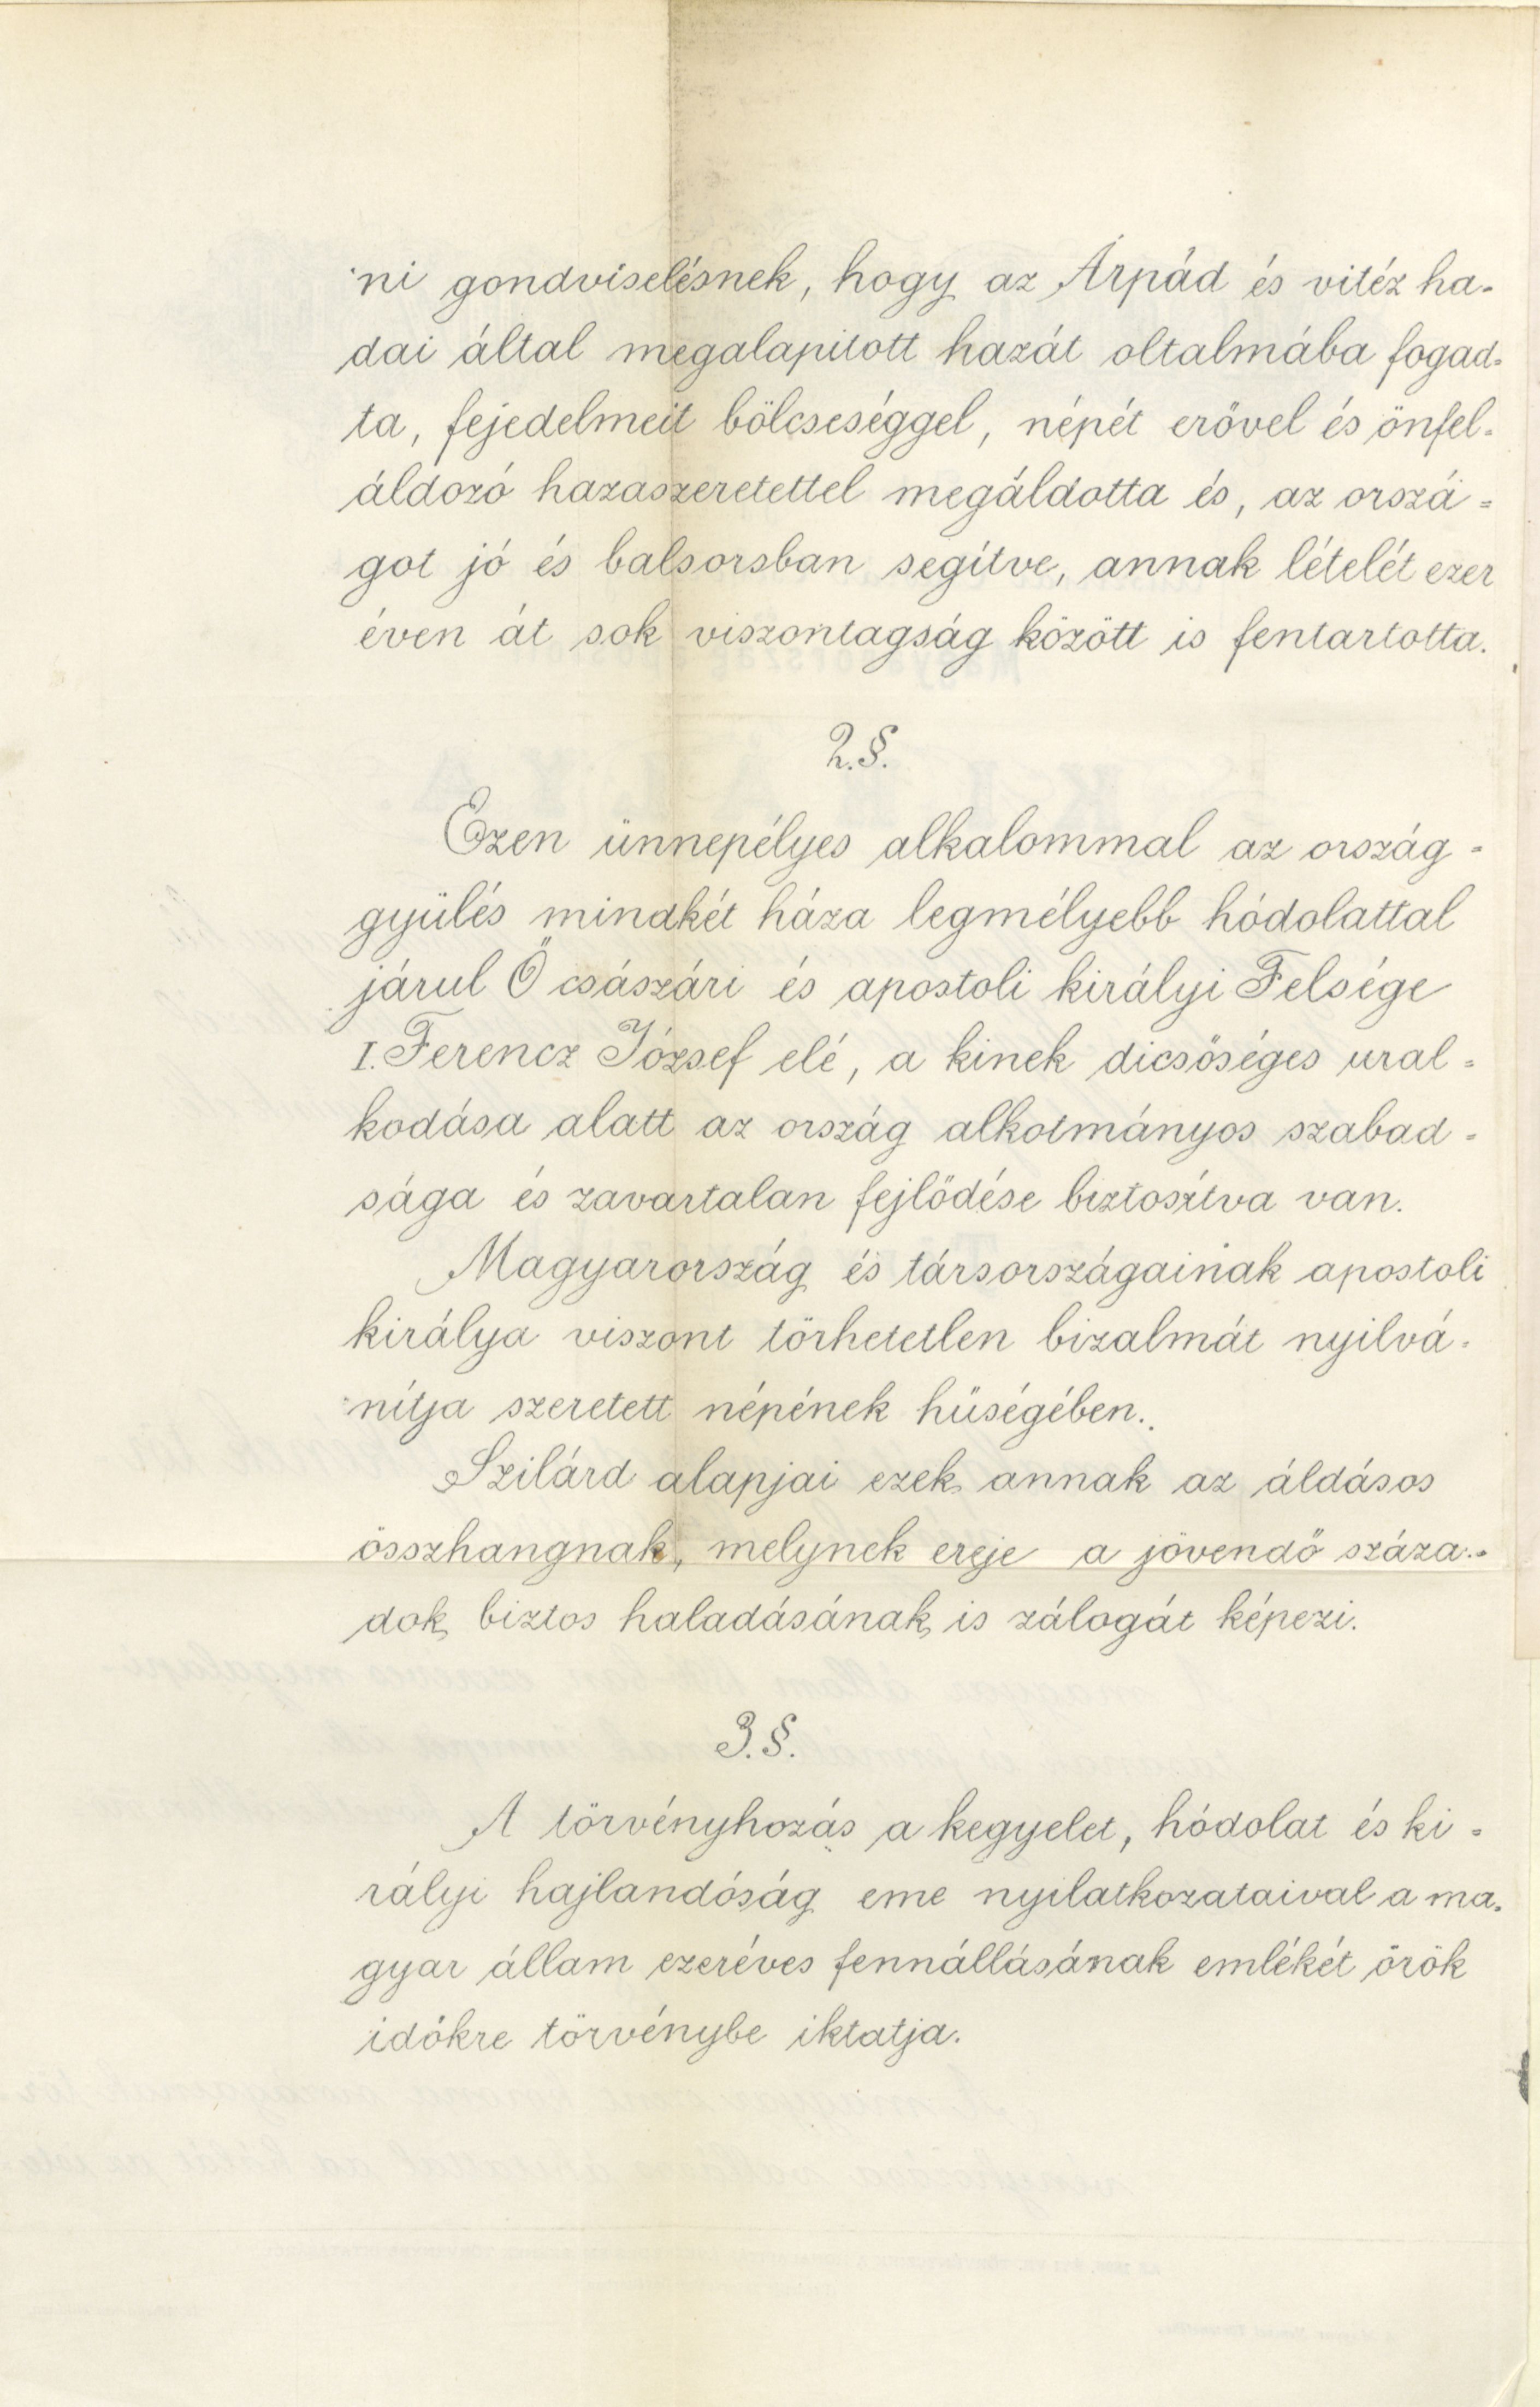 ni gondviselésnek, hogy az Árpád és vitéz ha-
dai által megalapitott hazát oltalmába fogad-
ta, fejedelmeit bölcseséggel, népét erővel és önfel-
áldozó hazaszeretettel megáldotta és, az orszá-
got jó és balsorsban segítve, annak lételét ezer
éven át sok viszontagság között is fentartotta.
2.§.
Ezen ünnepélyes alkalommal az ország-
gyülés mindkét háza legmélyebb hódolattal
járul Ő császári és apostoli királyi Felsége
I. Ferencz József elé, a kinek dicsőséges ural-
kodása alatt az ország alkotmányos szabad-
sága és zavartalan fejlődése biztosítva van.
Magyarország és társországainak apostoli
királya viszont törhetetlen bizalmát nyilvá-
nítja szeretett népének hűségében.
Szilárd alapjai ezek annak az áldásos
összhangnak, melynek ereje a jövendő száza-
dok biztos haladásának is zálogát képezi.
3.§.
A törvényhozás a kegyelet, hódolat és ki-
rályi hajlandóság eme nyilatkozataival a ma-
gyar állam ezeréves fennállásának emlékét örök
időkre törvénybe iktatja.